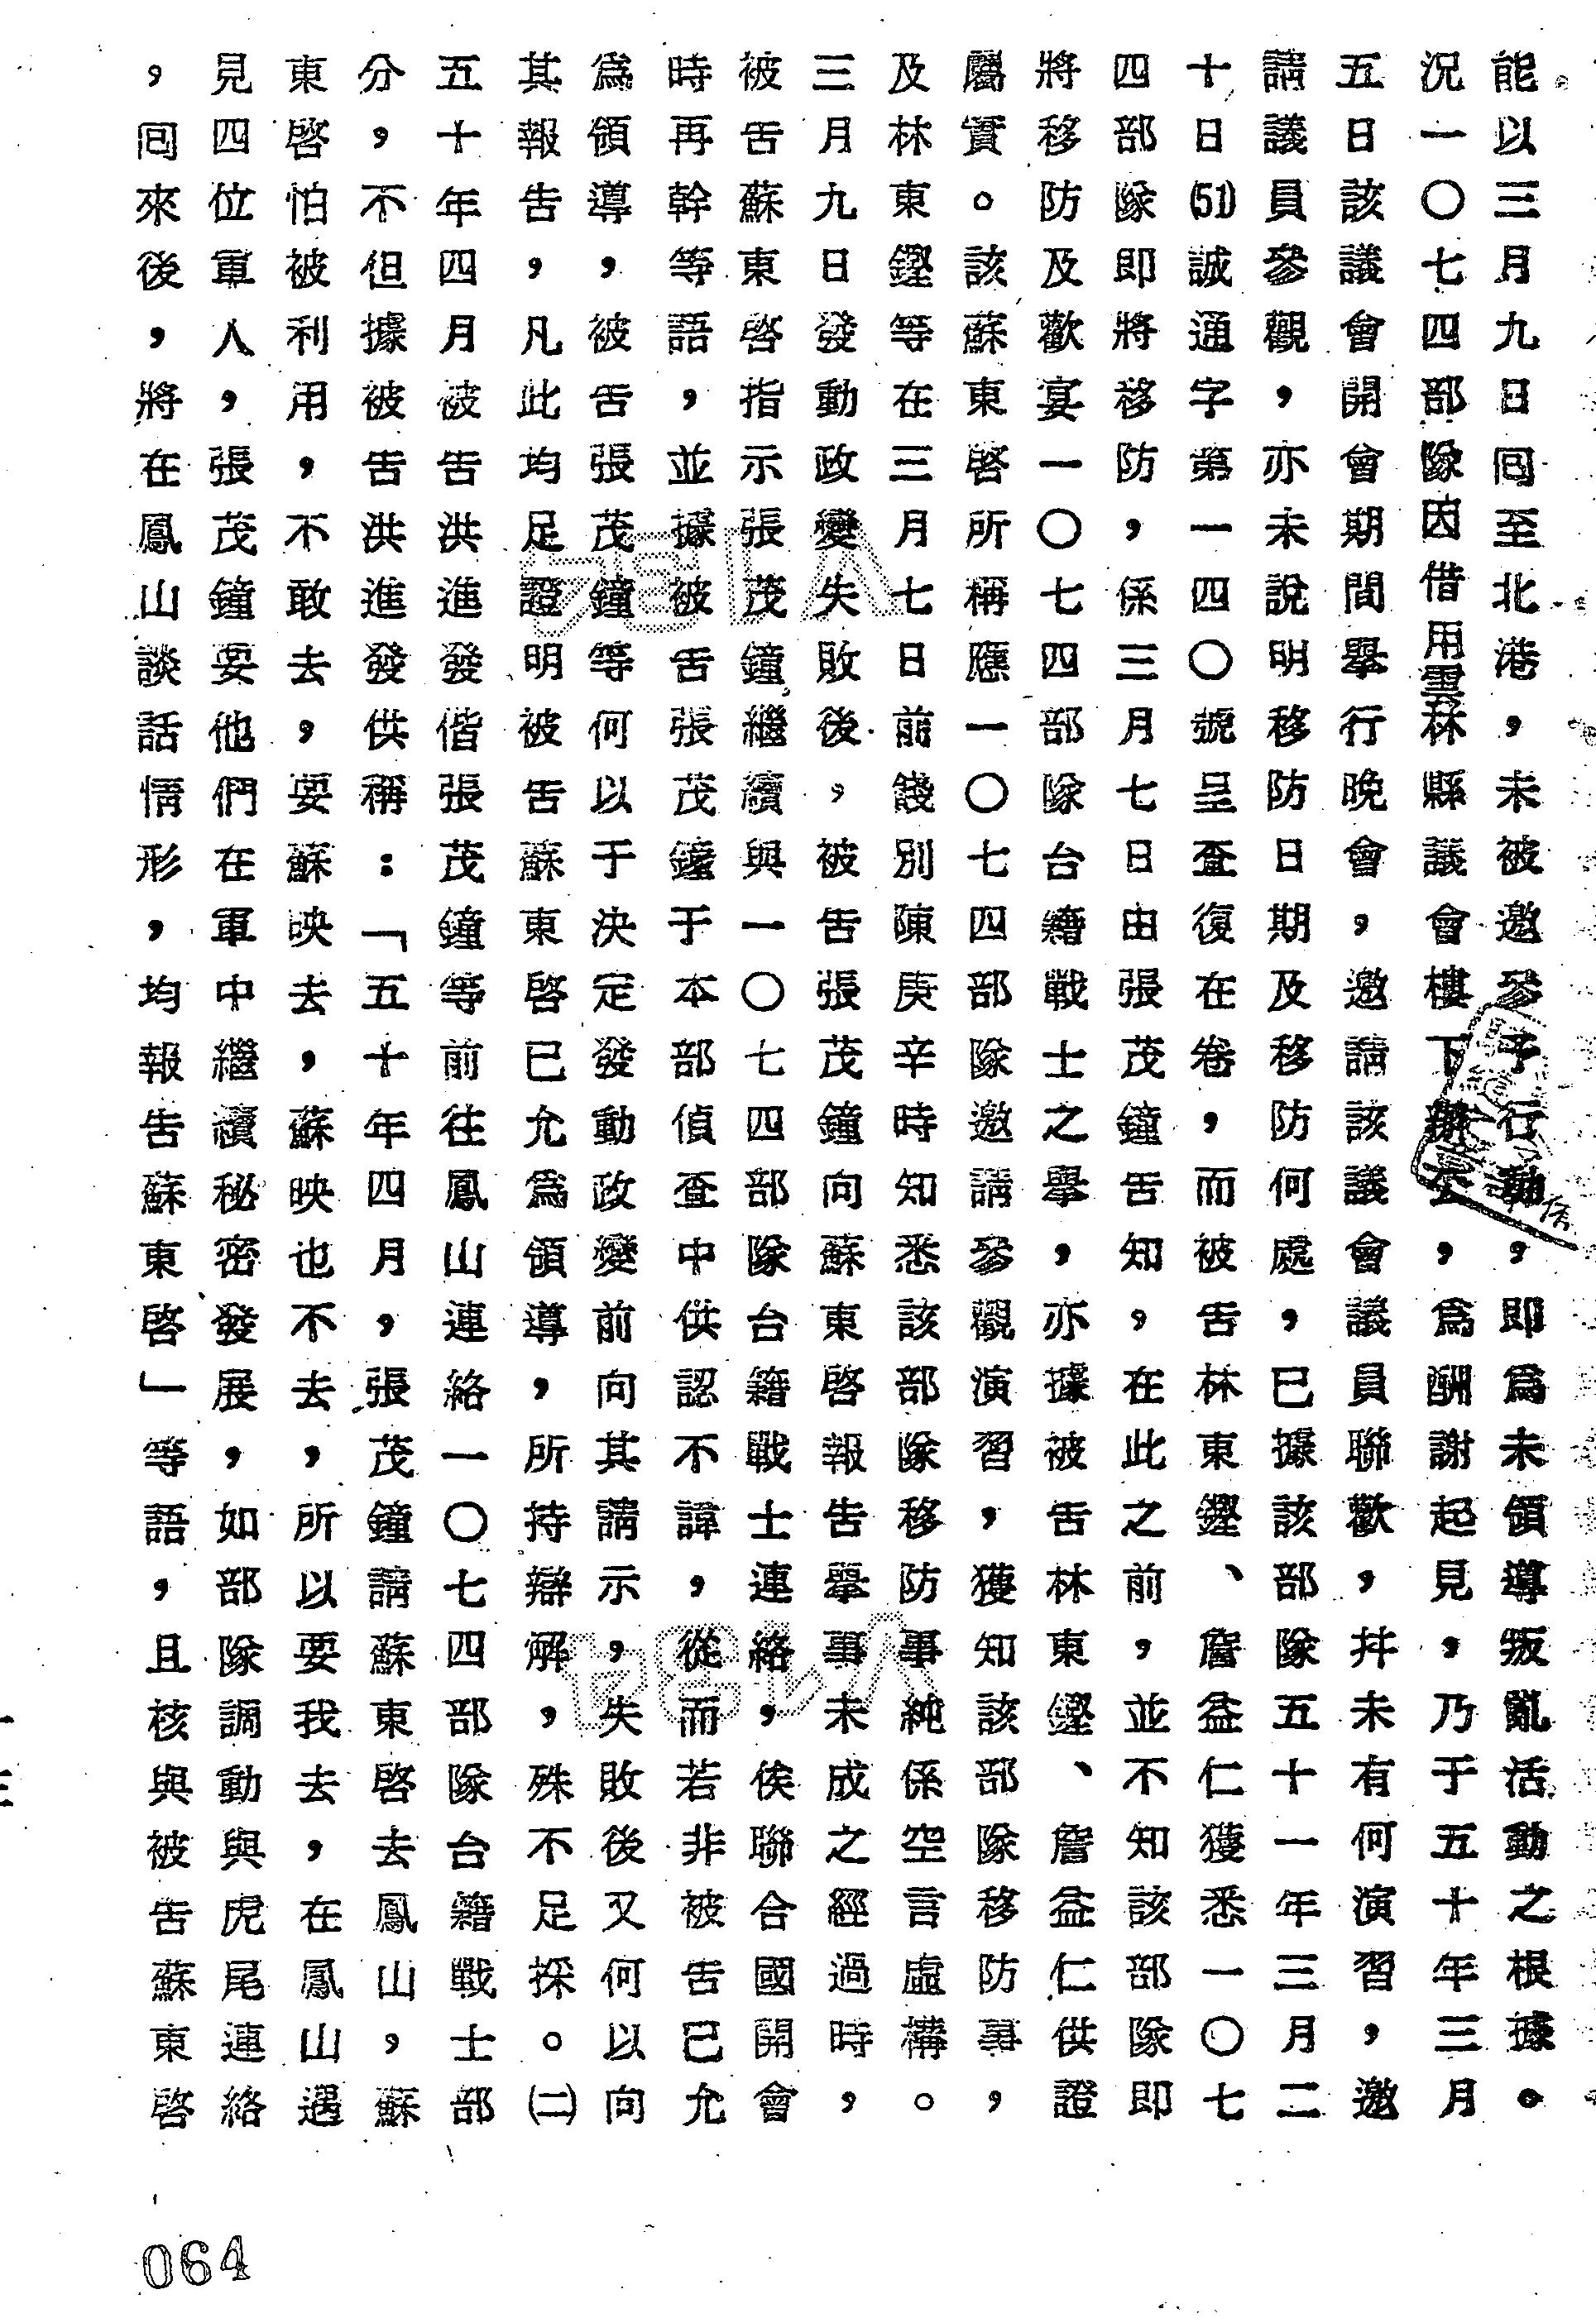 能以三月九日囘至北港，未被邀參予行動，即爲未領導叛亂活動之根據。
況一〇七四部隊因借用雲林縣議會樓下辦公，爲酬謝起見，乃于五十年三月
五日該議會開會期間舉行晚會，邀請該議會議員聯歡，幷未有何演習，邀
請議員參觀，亦未說明移防日期及移防何處，已據該部隊五十一年三月二
十日(51)誠通字第一四〇號呈查復在卷，而被告林東鏗、詹益仁獲悉一〇七
四部隊即將移防，係三月七日由張茂鐘告知，在此之前，並不知該部隊即
將移防及歡宴一〇七四部隊台籍戰士之舉，亦據被告林東鏗、詹益仁供證
屬實。該蘇東啓所稱應一〇七四部隊邀請參觀演習，獲知該部隊移防事，
及林東鏗等在三月七日前餞別陳庚辛時知悉該部隊移防事純係空言虛構。
三月九日發動政變失敗後，被告張茂鐘向蘇東啓報告舉事未成之經過時，
被告蘇東啓指示張茂鐘繼續與一〇七四部隊台籍戰士連絡，俟聯合國開會
時再幹等語，並據被告張茂鐘于本部偵查中供認不諱，從而若非被告已允
爲領導，被告張茂鐘等何以于決定發動政變前向其請示，失敗後又何以向
其報告，凡此均足證明被告蘇東啓已允爲領導，所持辯解，殊不足採。(二)
五十年四月被告洪進發偕張茂鐘等前往鳳山連絡一〇七四部隊台籍戰士部
分，不但據被告洪進發供稱：「五十年四月，張茂鐘請蘇東啓去鳳山，蘇
東啓怕被利用，不敢去，要蘇映去，蘇映也不去，所以要我去，在鳳山遇
見四位軍人，張茂鐘要他們在軍中繼續秘密發展，如部隊調動與虎尾連絡
，囘來後，將在鳳山談話情形，均報告蘇東啓」等語，且核與被告蘇東啓
064